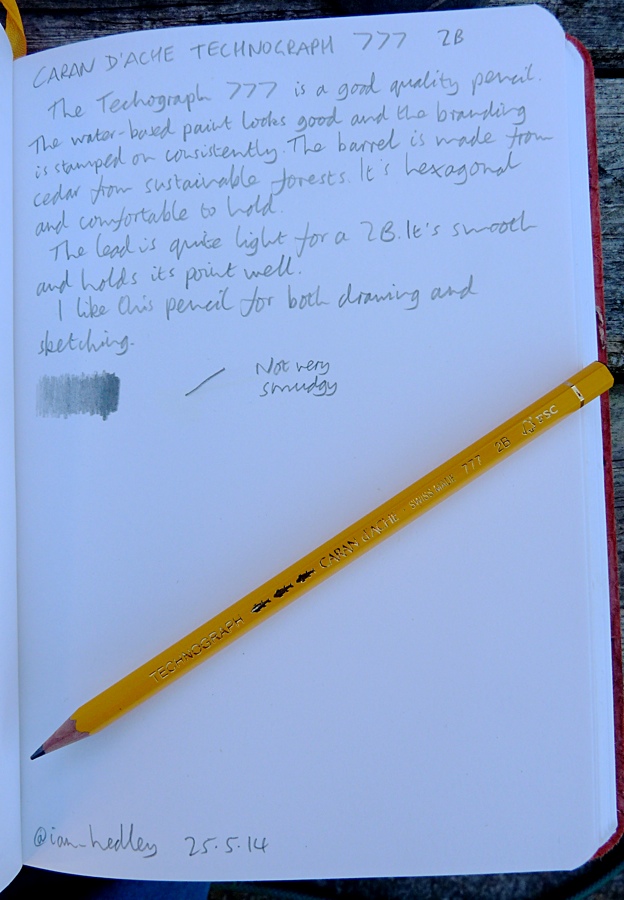 CARAN D'ACHE TECHNOGRAPH 777 2B
The Techograph 777 is a good quality pencil.
The water-based paint looks good and the branding
is stamped on consistently. The barrel is made from
cedar from sustainable forests. It's hexagonal
and comfortable to hold.
The lead is quite light for a 2B. It's smooth
and holds its point well.
I like this pencil for both drawing and
sketching.
Not very
smudgy
TECHNOGRAPH CARAN D'ACHE SWISS MADE 777 2B FSC
@ian_hedley 25.5.14